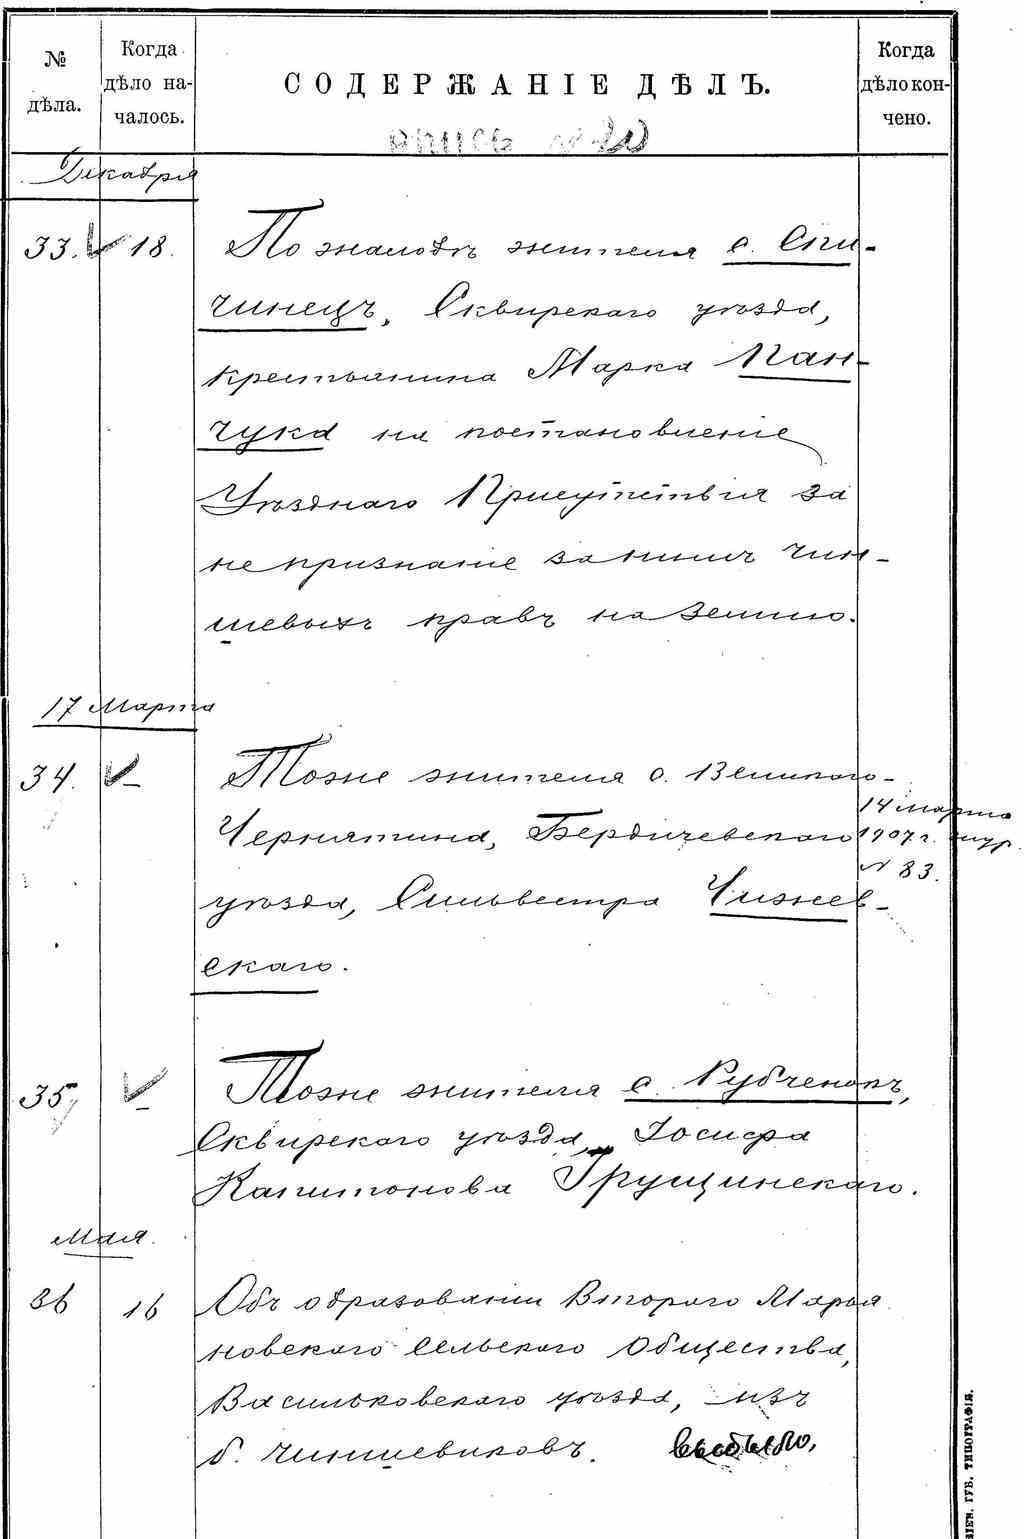 № дѣла.
Когда дѣло на-
чалось.
СОДЕРЖАНІЕ ДѢЛЪ.
Когда дѣло кон-
чено.
Декабря
33. 18. По жалобѣ жителя с. Спи-
чинецъ, Сквирскаго уѣзда,
крестьянина Марка Пан-
чука на постановленіе
Уѣзднаго Присутствія за
непризнаніе за нимъ чин-
шевыхъ правъ на землю.
17 Марта
34. Тоже жителя с. Великого-
Чернятина, Бердичевскаго
уѣзда, Сильвестра Чижев-
скаго.
14 марта
1907 г. жур.
№ 83.
35. Тоже жителя с. Рубченокъ,
Сквирскаго уѣзда, Іосифа
Капитонова Грущинскаго.
Мая.
36 16 Объ образованіи Второго Марья
новскаго сельскаго общества,
Васильковскаго уѣзда, изъ
б. чиншевиковъ. выбыло,
ГУБ. ТИПОГРАФІЯ.